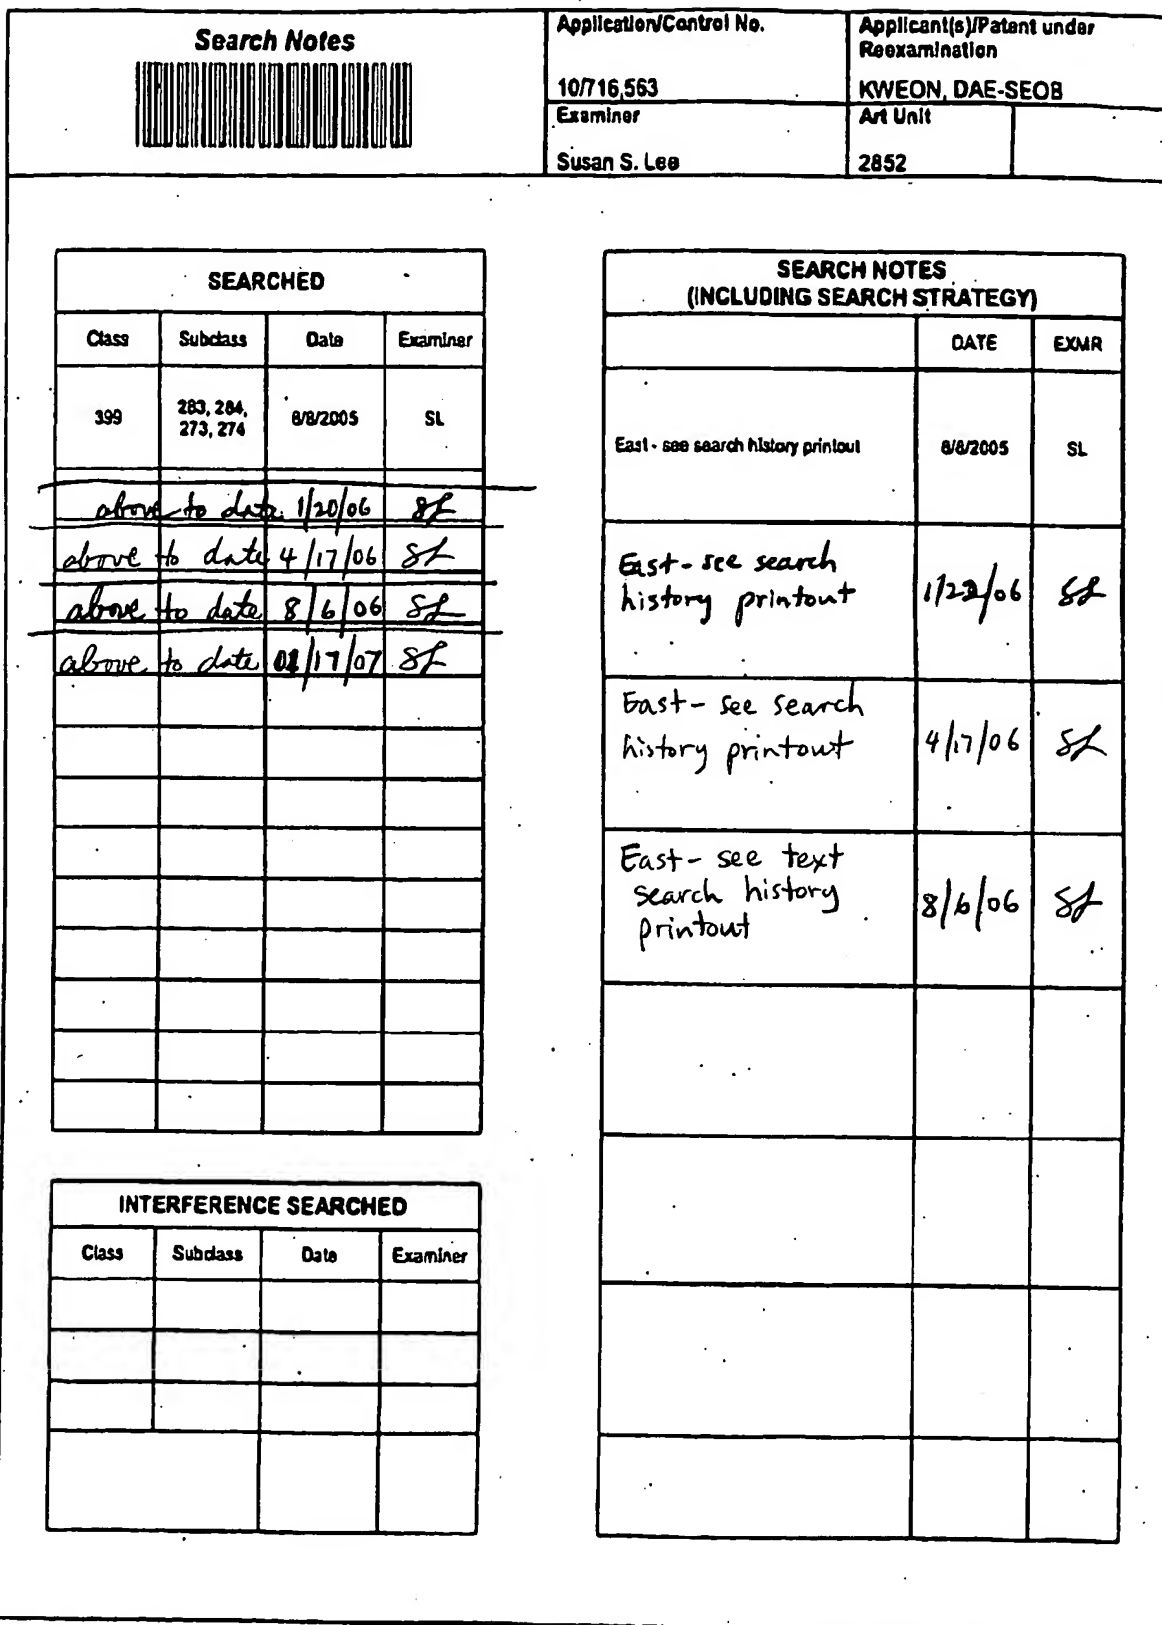 Search Notes
Application/Control No.
10/716,563
Applicant(s)/Patent under
Reexamination
KWEON, DAE-SEOB
Examiner
Susan S. Lee
Art Unit
2852
SEARCHED
Class Subclass Date Examiner
399 283, 284, 273, 274 8/8/2005 SL
above to date 1/20/06 SL
above to date 4/17/06 SL
above to date 8/6/06 SL
above to date /17/07 SL
INTERFERENCE SEARCHED
Class Subclass Date Examiner
SEARCH NOTES
(INCLUDING SEARCH STRATEGY)
DATE EXMR
East - see search history printout 8/8/2005 SL
East - see search
history printout SL
East - see search
history printout 4/17/06 SL
East - see text
search history
printout 8/6/06 SL